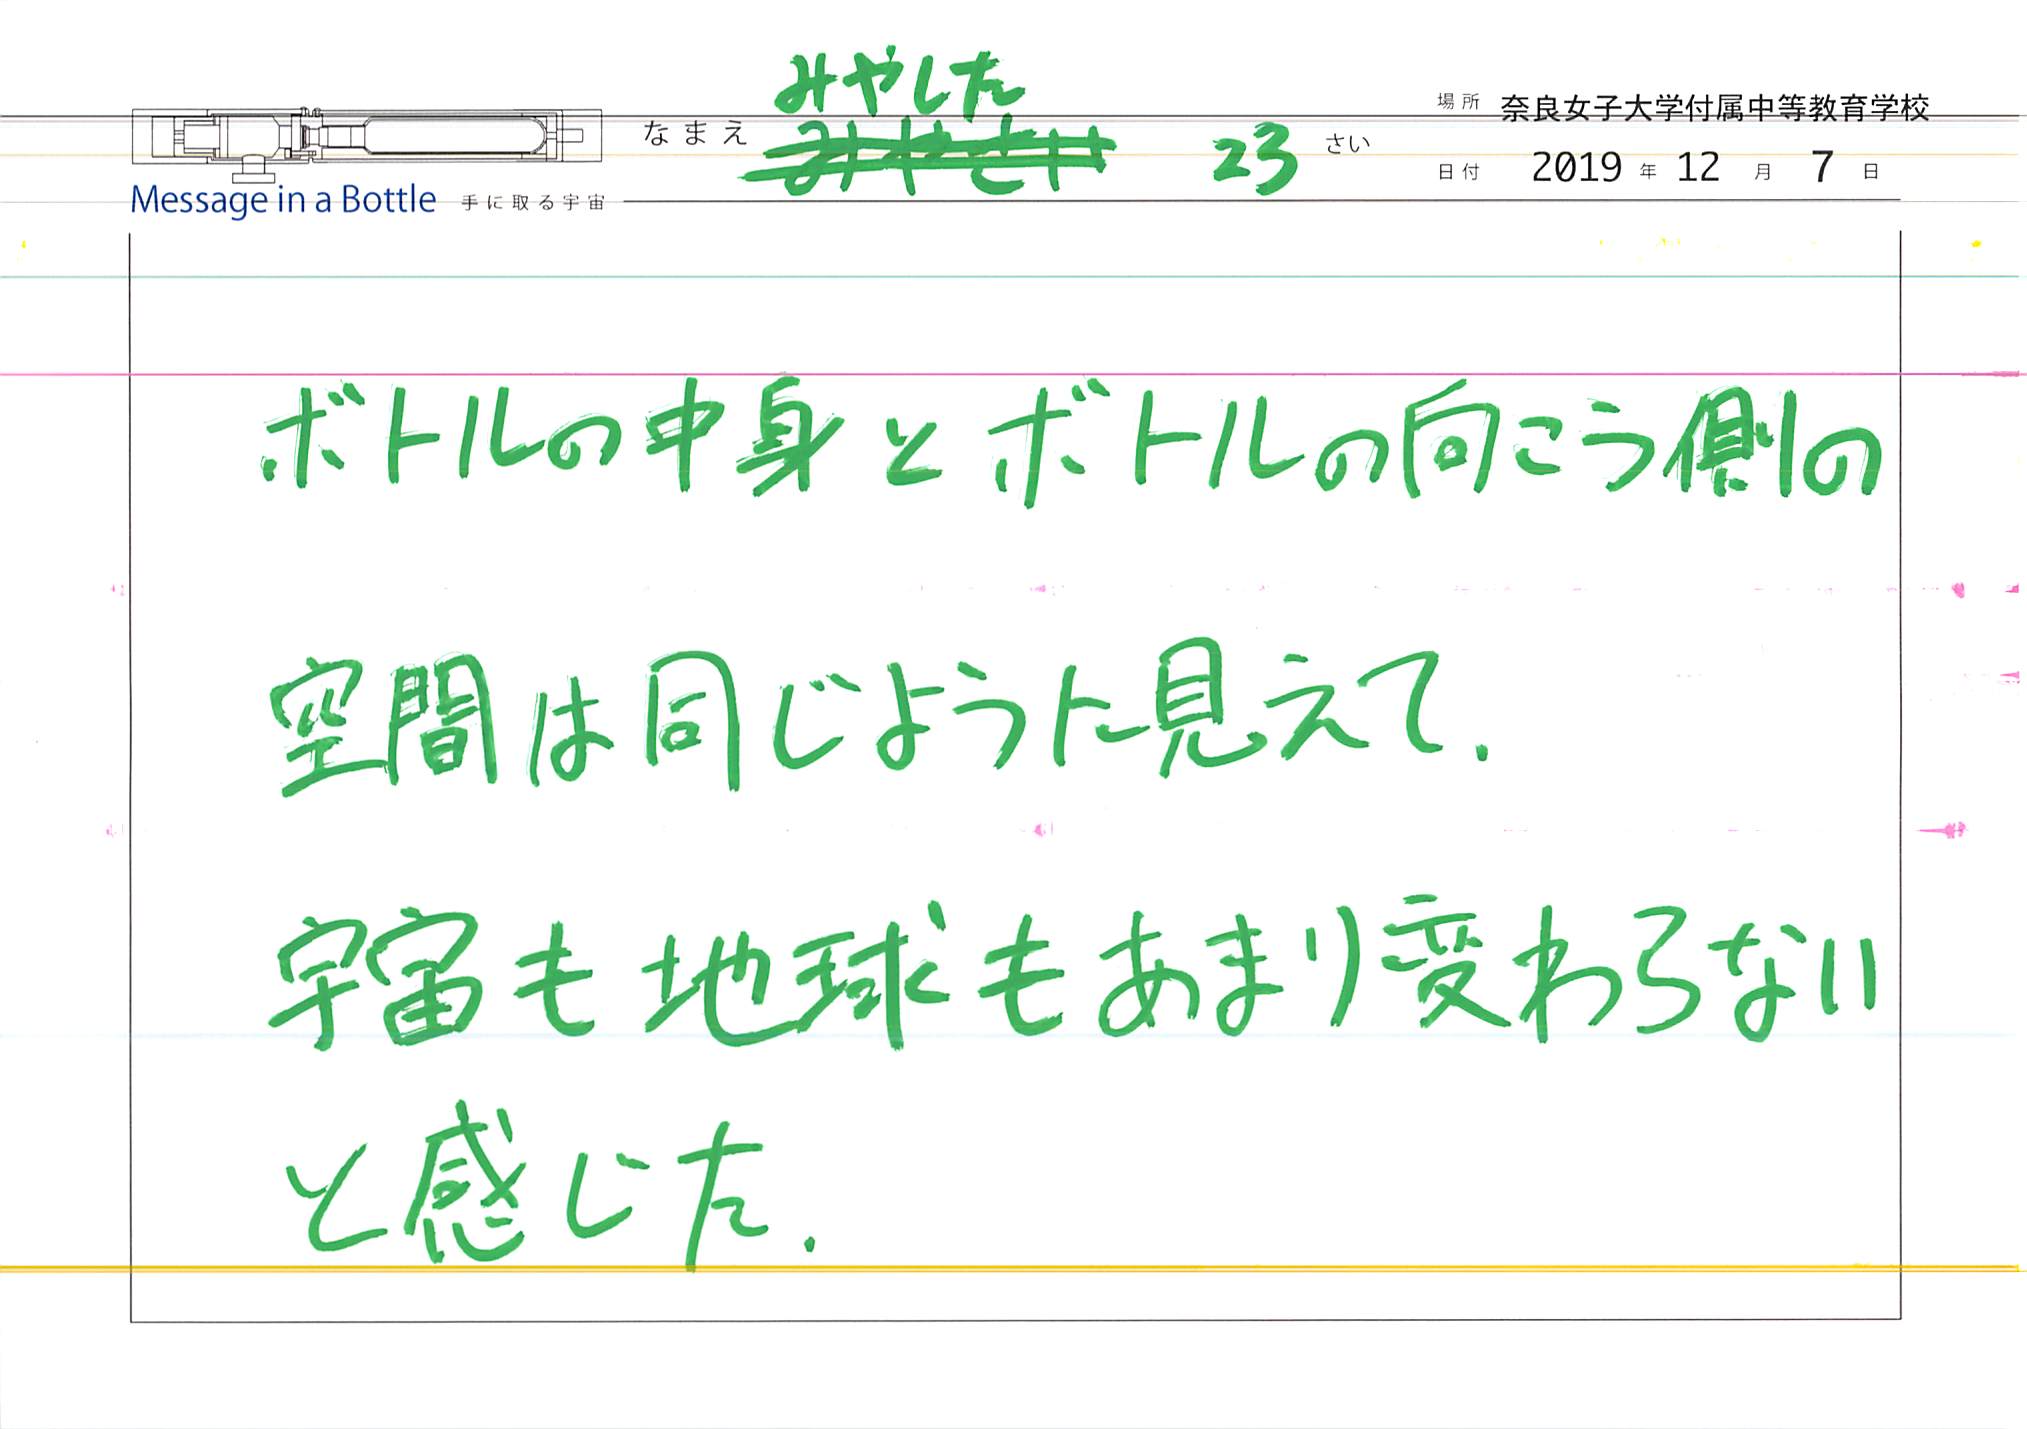 みやした
なまえ 23 さい
場所 奈良女子大学付属中等教育学校
日付 2019 年 12 月 7 日
Message in a Bottle 手に取る宇宙
ボトルの中身とボトルの向こう側の
空間は同じように見えて.
宇宙も地球もあまり変わらない
と感じた.